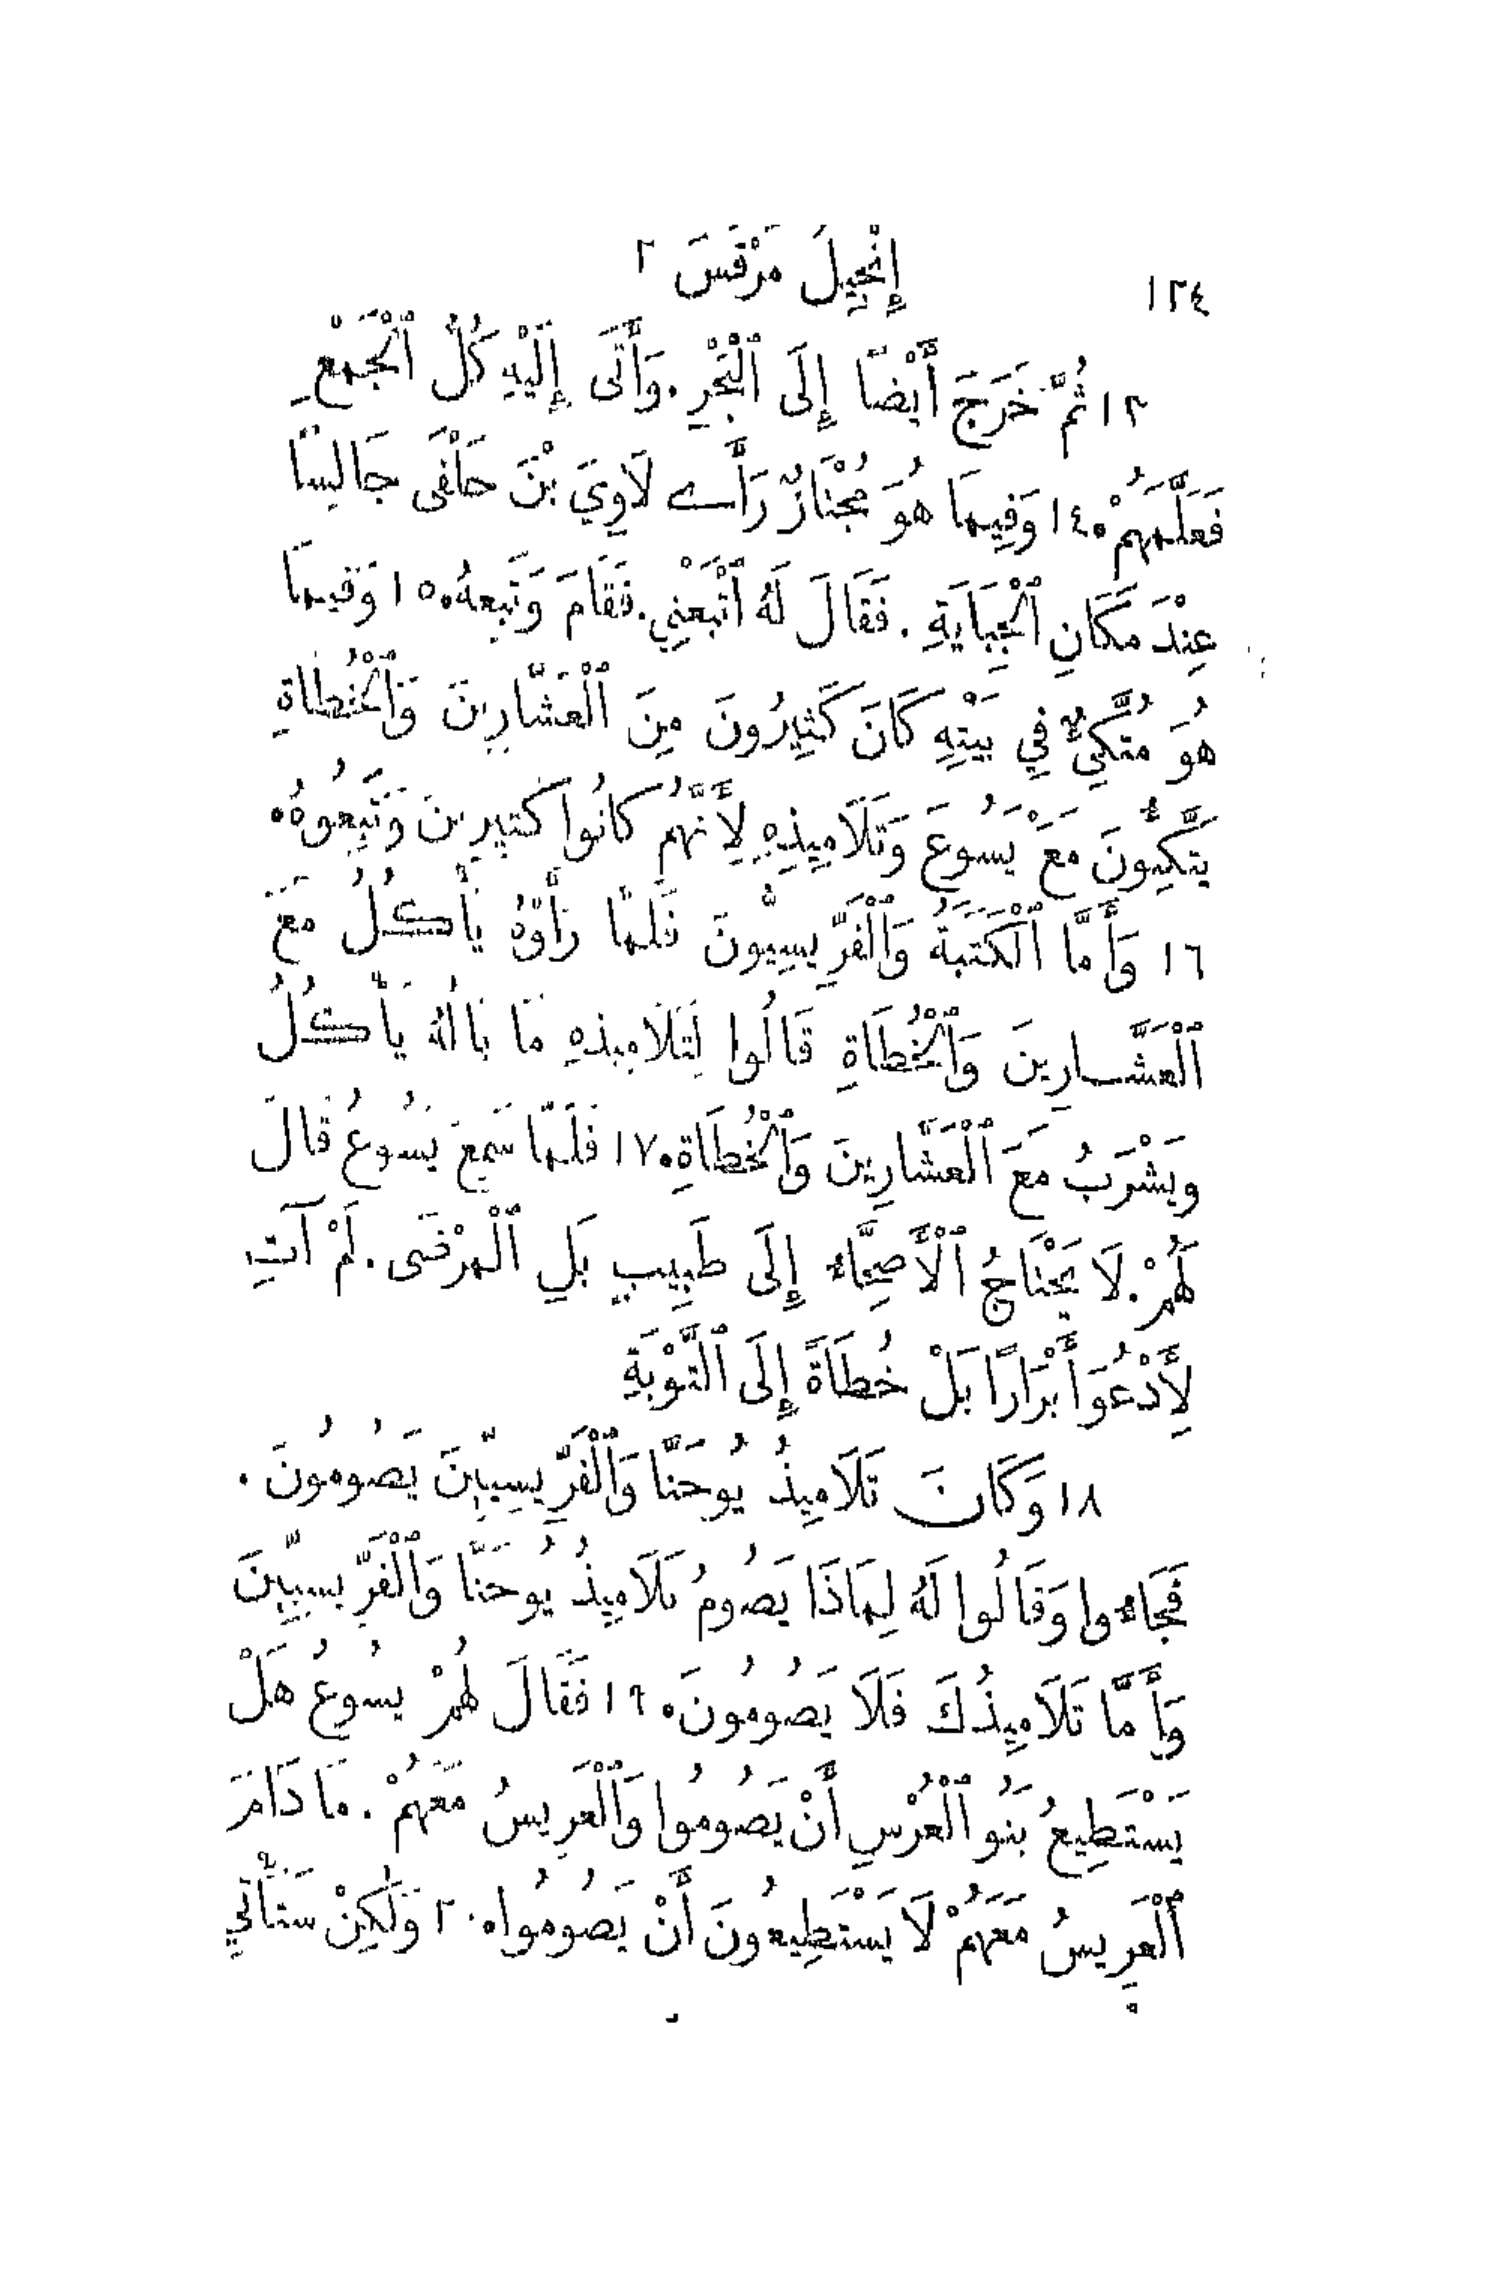 ١٢٤ إِنْجِيلُ مَرْقُسَ ٢
١٣ ثُمَّ خَرَجَ أَيْضًا إِلَى ٱلْبَحْرِ. وَأَتَى إِلَيْهِ كُلُّ ٱلْجَمْعِ
فَعَلَّمَهُمْ. ١٤ وَفِيمَا هُوَ مُجْتَازٌ رَأَى لَاوِيَ بْنَ حَلْفَى جَالِسًا
عِنْدَ مَكَانِ ٱلْجِبَايَةِ. فَقَالَ لَهُ ٱتْبَعْنِي. فَقَامَ وَتَبِعَهُ. ١٥ وَفِيمَا
هُوَ مُتَّكِئٌ فِي بَيْتِهِ كَانَ كَثِيرُونَ مِنَ ٱلْعَشَّارِينَ وَٱلْخُطَاةِ
يَتَّكِئُونَ مَعَ يَسُوعَ وَتَلَامِيذِهِ لِأَنَّهُمْ كَانُوا كَثِيرِينَ وَتَبِعُوهُ.
١٦ وَأَمَّا ٱلْكَتَبَةُ وَٱلْفَرِّيسِيُّونَ فَلَمَّا رَأَوْهُ يَأْكُلُ مَعَ
ٱلْعَشَّارِينَ وَٱلْخُطَاةِ قَالُوا لِتَلَامِيذِهِ مَا بَالُهُ يَأْكُلُ
وَيَشْرَبُ مَعَ ٱلْعَشَّارِينَ وَٱلْخُطَاةِ. ١٧ فَلَمَّا سَمِعَ يَسُوعُ قَالَ
لَهُمْ. لَا يَحْتَاجُ ٱلْأَصِحَّاءُ إِلَى طَبِيبٍ بَلِ ٱلْمَرْضَى. لَمْ آتِ
لِأَدْعُوَ أَبْرَارًا بَلْ خُطَاةً إِلَى ٱلتَّوْبَةِ
١٨ وَكَانَ تَلَامِيذُ يُوحَنَّا وَٱلْفَرِّيسِيِّينَ يَصُومُونَ.
فَجَاءُوا وَقَالُوا لَهُ لِمَاذَا يَصُومُ تَلَامِيذُ يُوحَنَّا وَٱلْفَرِّيسِيِّينَ
وَأَمَّا تَلَامِيذُكَ فَلَا يَصُومُونَ. ١٩ فَقَالَ لَهُمْ يَسُوعُ هَلْ
يَسْتَطِيعُ بَنُو ٱلْعُرْسِ أَنْ يَصُومُوا وَٱلْعَرِيسُ مَعَهُمْ. مَا دَامَ
ٱلْعَرِيسُ مَعَهُمْ لَا يَسْتَطِيعُونَ أَنْ يَصُومُوا. ٢٠ وَلٰكِنْ سَتَأْتِي